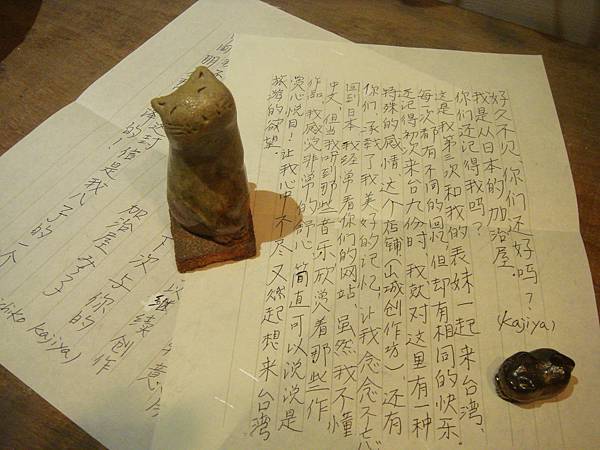 好久不见,你们还好吗?
我是从日本的加治屋,(Kajiya)
你们还记得我吗?
这是我第三次和我的表妹一起来台湾,
每一次都有不同的回忆但却有相同的快乐.
还记得初次来台九份时,我就对这里有一种
特殊的感情,这个店铺(山城创作坊),还有
你们,承载了我美好的记忆,让我念念不忘
回到日本,我经常看你们的网站,虽然我不懂
中文,但当我听到那些音乐欣赏着那些作
作品,我感觉非常的舒心,简直可以说说是
赏心悦目!让我心中不尽又燃起想来台湾
旅游的欲望.
继续
创作
下次与你的
加治屋
Kajiya)